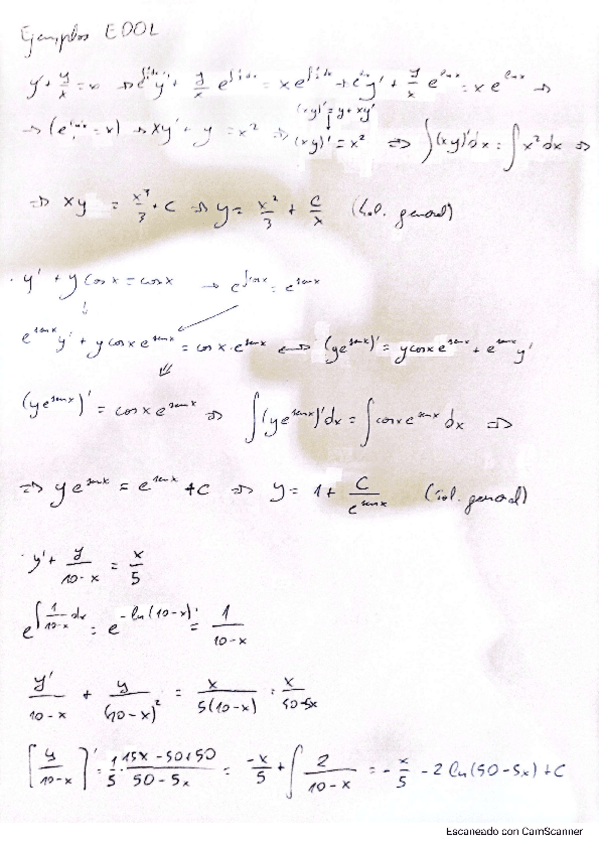 Ejemplos EDOL
y' + y/x = x ⇒ e^{∫1/x dx} y' + y/x e^{∫1/x dx} = x e^{∫1/x dx} → e^{ln x} y' + y/x e^{ln x} = x e^{ln x} ⇒
(xy)' = y + xy'
⇒ (e^{ln x} = x) ⇒ xy' + y = x² ⇒ (xy)' = x² ⇒ ∫(xy)'dx = ∫x²dx ⇒
⇒ xy = x³/3 + C ⇒ y = x²/3 + C/x (Sol. general)
· y' + y cosx = cosx → e^{∫cosx} = e^{senx}
e^{senx} y' + y cosx e^{senx} = cosx · e^{senx} ⇐⇒ (ye^{senx})' = ycosx e^{senx} + e^{senx} y'
(ye^{senx})' = cosx e^{senx} ⇒ ∫(ye^{senx})'dx = ∫cosx e^{senx} dx ⇒
⇒ ye^{senx} = e^{senx} + C ⇒ y = 1 + C/e^{senx} (Sol. general)
· y' + y/(10-x) = x/5
e^{∫1/(10-x) dx} = e^{-ln(10-x)} = 1/(10-x)
y'/(10-x) + y/(10-x)² = x/5(10-x) = x/50-5x
[y/(10-x)]' = 1/5 · / 50-5x = -x/5 + ∫ 2/(10-x) = -x/5 - 2ln(50-5x) + C
Escaneado con CamScanner